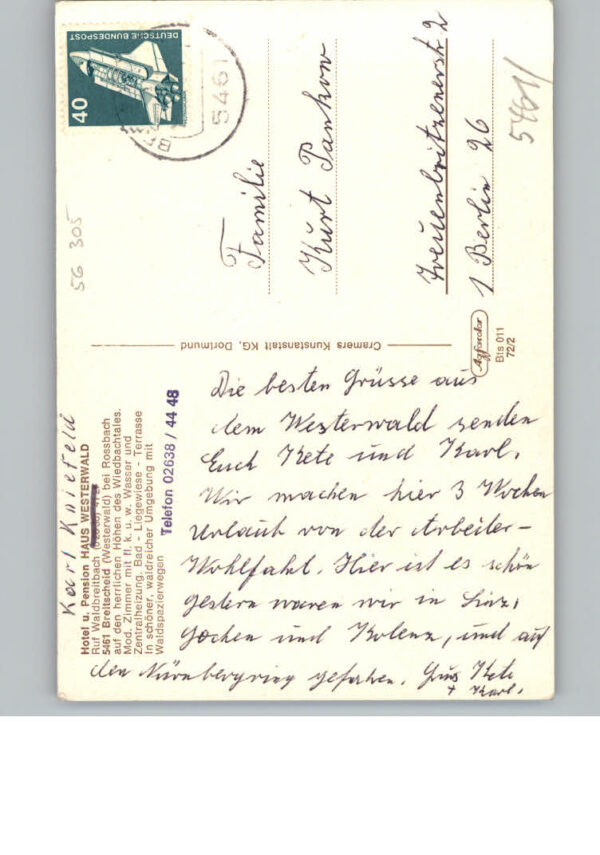 Karl Kniefeld
Hotel u. Pension HAUS WESTERWALD
Ruf Waldbreitbach
5461 Breitscheid (Westerwald) bei Rossbach
auf den herrlichen Höhen des Wiedbachtales.
Mod. Zimmer mit fl. k. u. w. Wasser und
Zentralheizung. Bad - Liegewiese - Terrasse
In schöner, waldreicher Umgebung mit
Waldspazierwegen
Telefon 02638 / 44 48
Die besten Grüsse aus
dem Westerwald senden
Euch Kete und Karl.
Wir machen hier 3 Wochen
Urlaub von der Arbeiter-
Wohlfahrt. Hier ist es schön
gestern waren wir in Linz,
Cochen und Kolenz, und auf
den Nürnbergring gefahren. Gruss Kete
+ Karl.
Cramers Kunstanstalt KG, Dortmund
Agfacolor
Bts 011
72/2
56 305
DEUTSCHE BUNDESPOST
40
5461
Familie
Kurt Pankow
Treuenbritzenerstr 2
1 Berlin 26
5461/